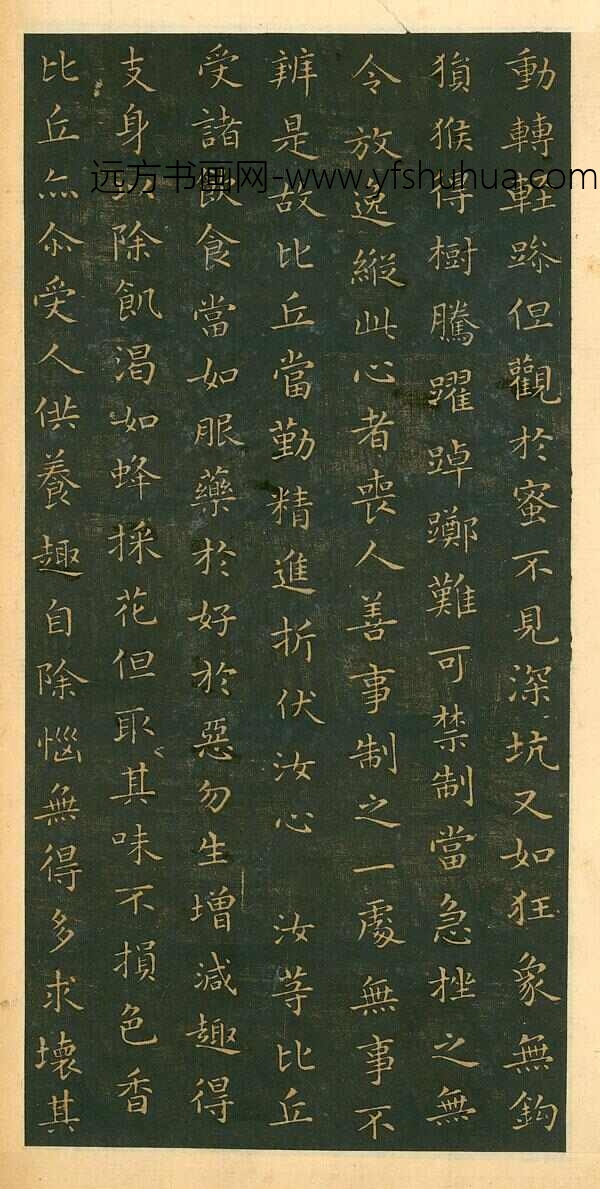 動轉輕躁但觀於蜜不見深坑又如狂象無鈎
猨猴得樹騰躍踔躑難可禁制當急挫之無
令放逸縱此心者喪人善事制之一處無事不
辨是故比丘當勤精進折伏汝心 汝等比丘
受諸飲食當如服藥於好於惡勿生增減趣得
支身除飢渴如蜂採花但取其味不損色香
比丘亦尒受人供養趣自除惱無得多求壞其
远方书画网-www.yfshuhua.com